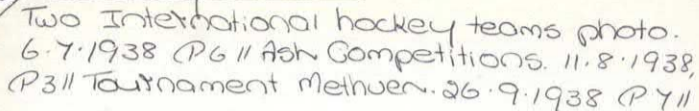 Two International hockey teams photo.
6.7.1938 (P6 // Ash Competitions. 11.8.1938,
P3 // Tournament Methuen. 26.9.1938 (P7 //